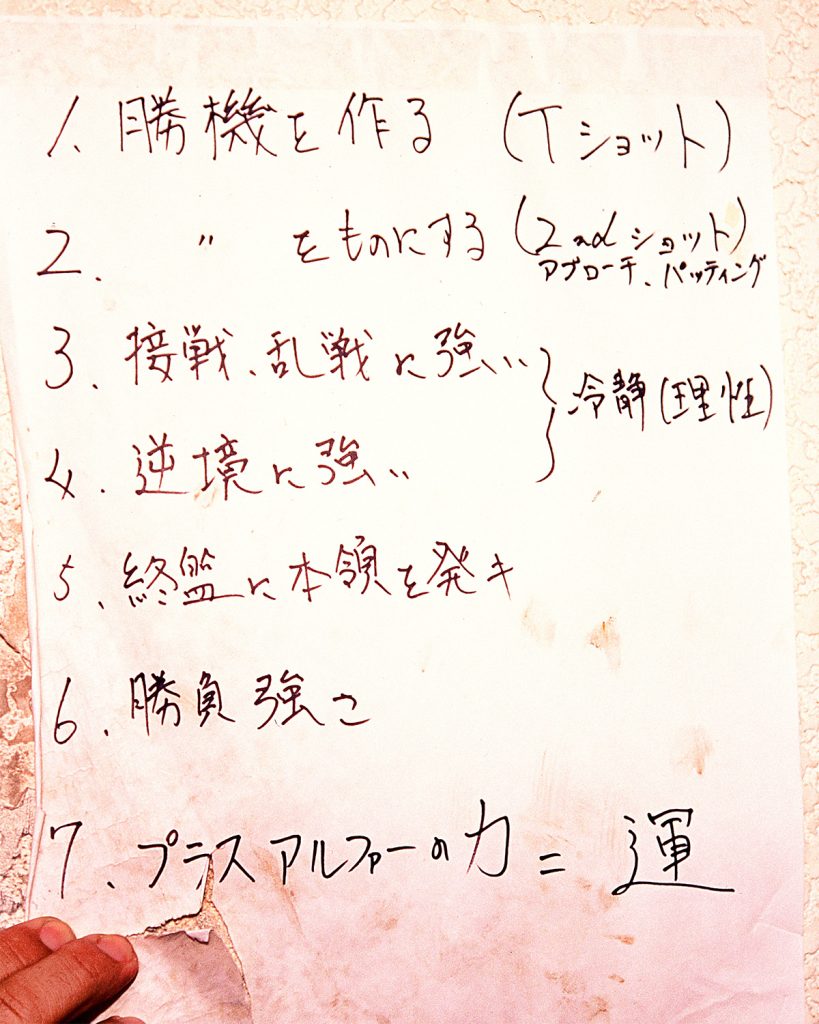 1. 勝機を作る (Tショット)
2. 〃 をものにする (2ndショット)
アプローチ、パッティング
3. 接戦、乱戦に強い
冷静(理性)
4. 逆境に強い
5. 終盤に本領を発キ
6. 勝負強さ
7. プラスアルファーの力 = 運